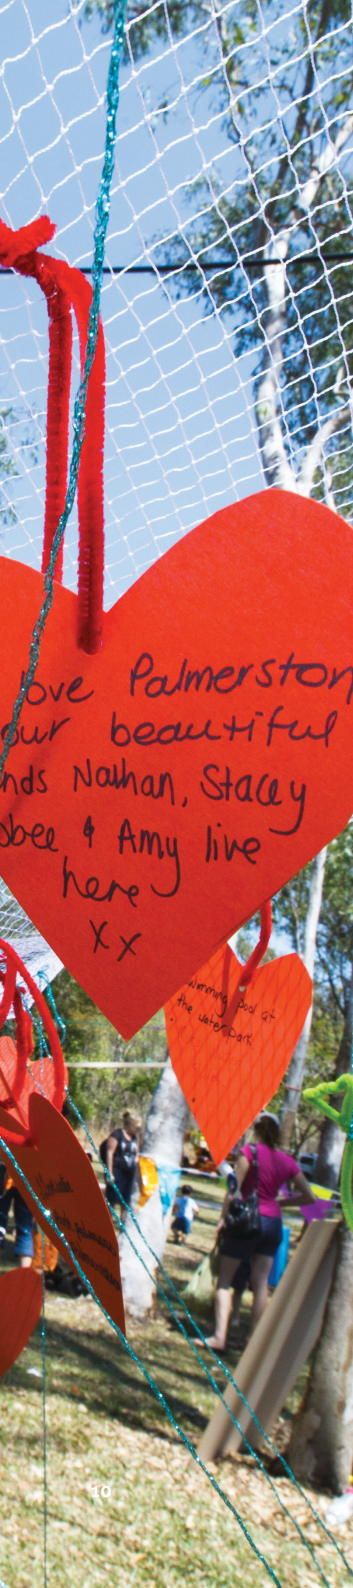 love Palmerston
our beautiful
nds Nathan, Stacey
bee & Amy live
here
xx
wimming pool at
the water park
10